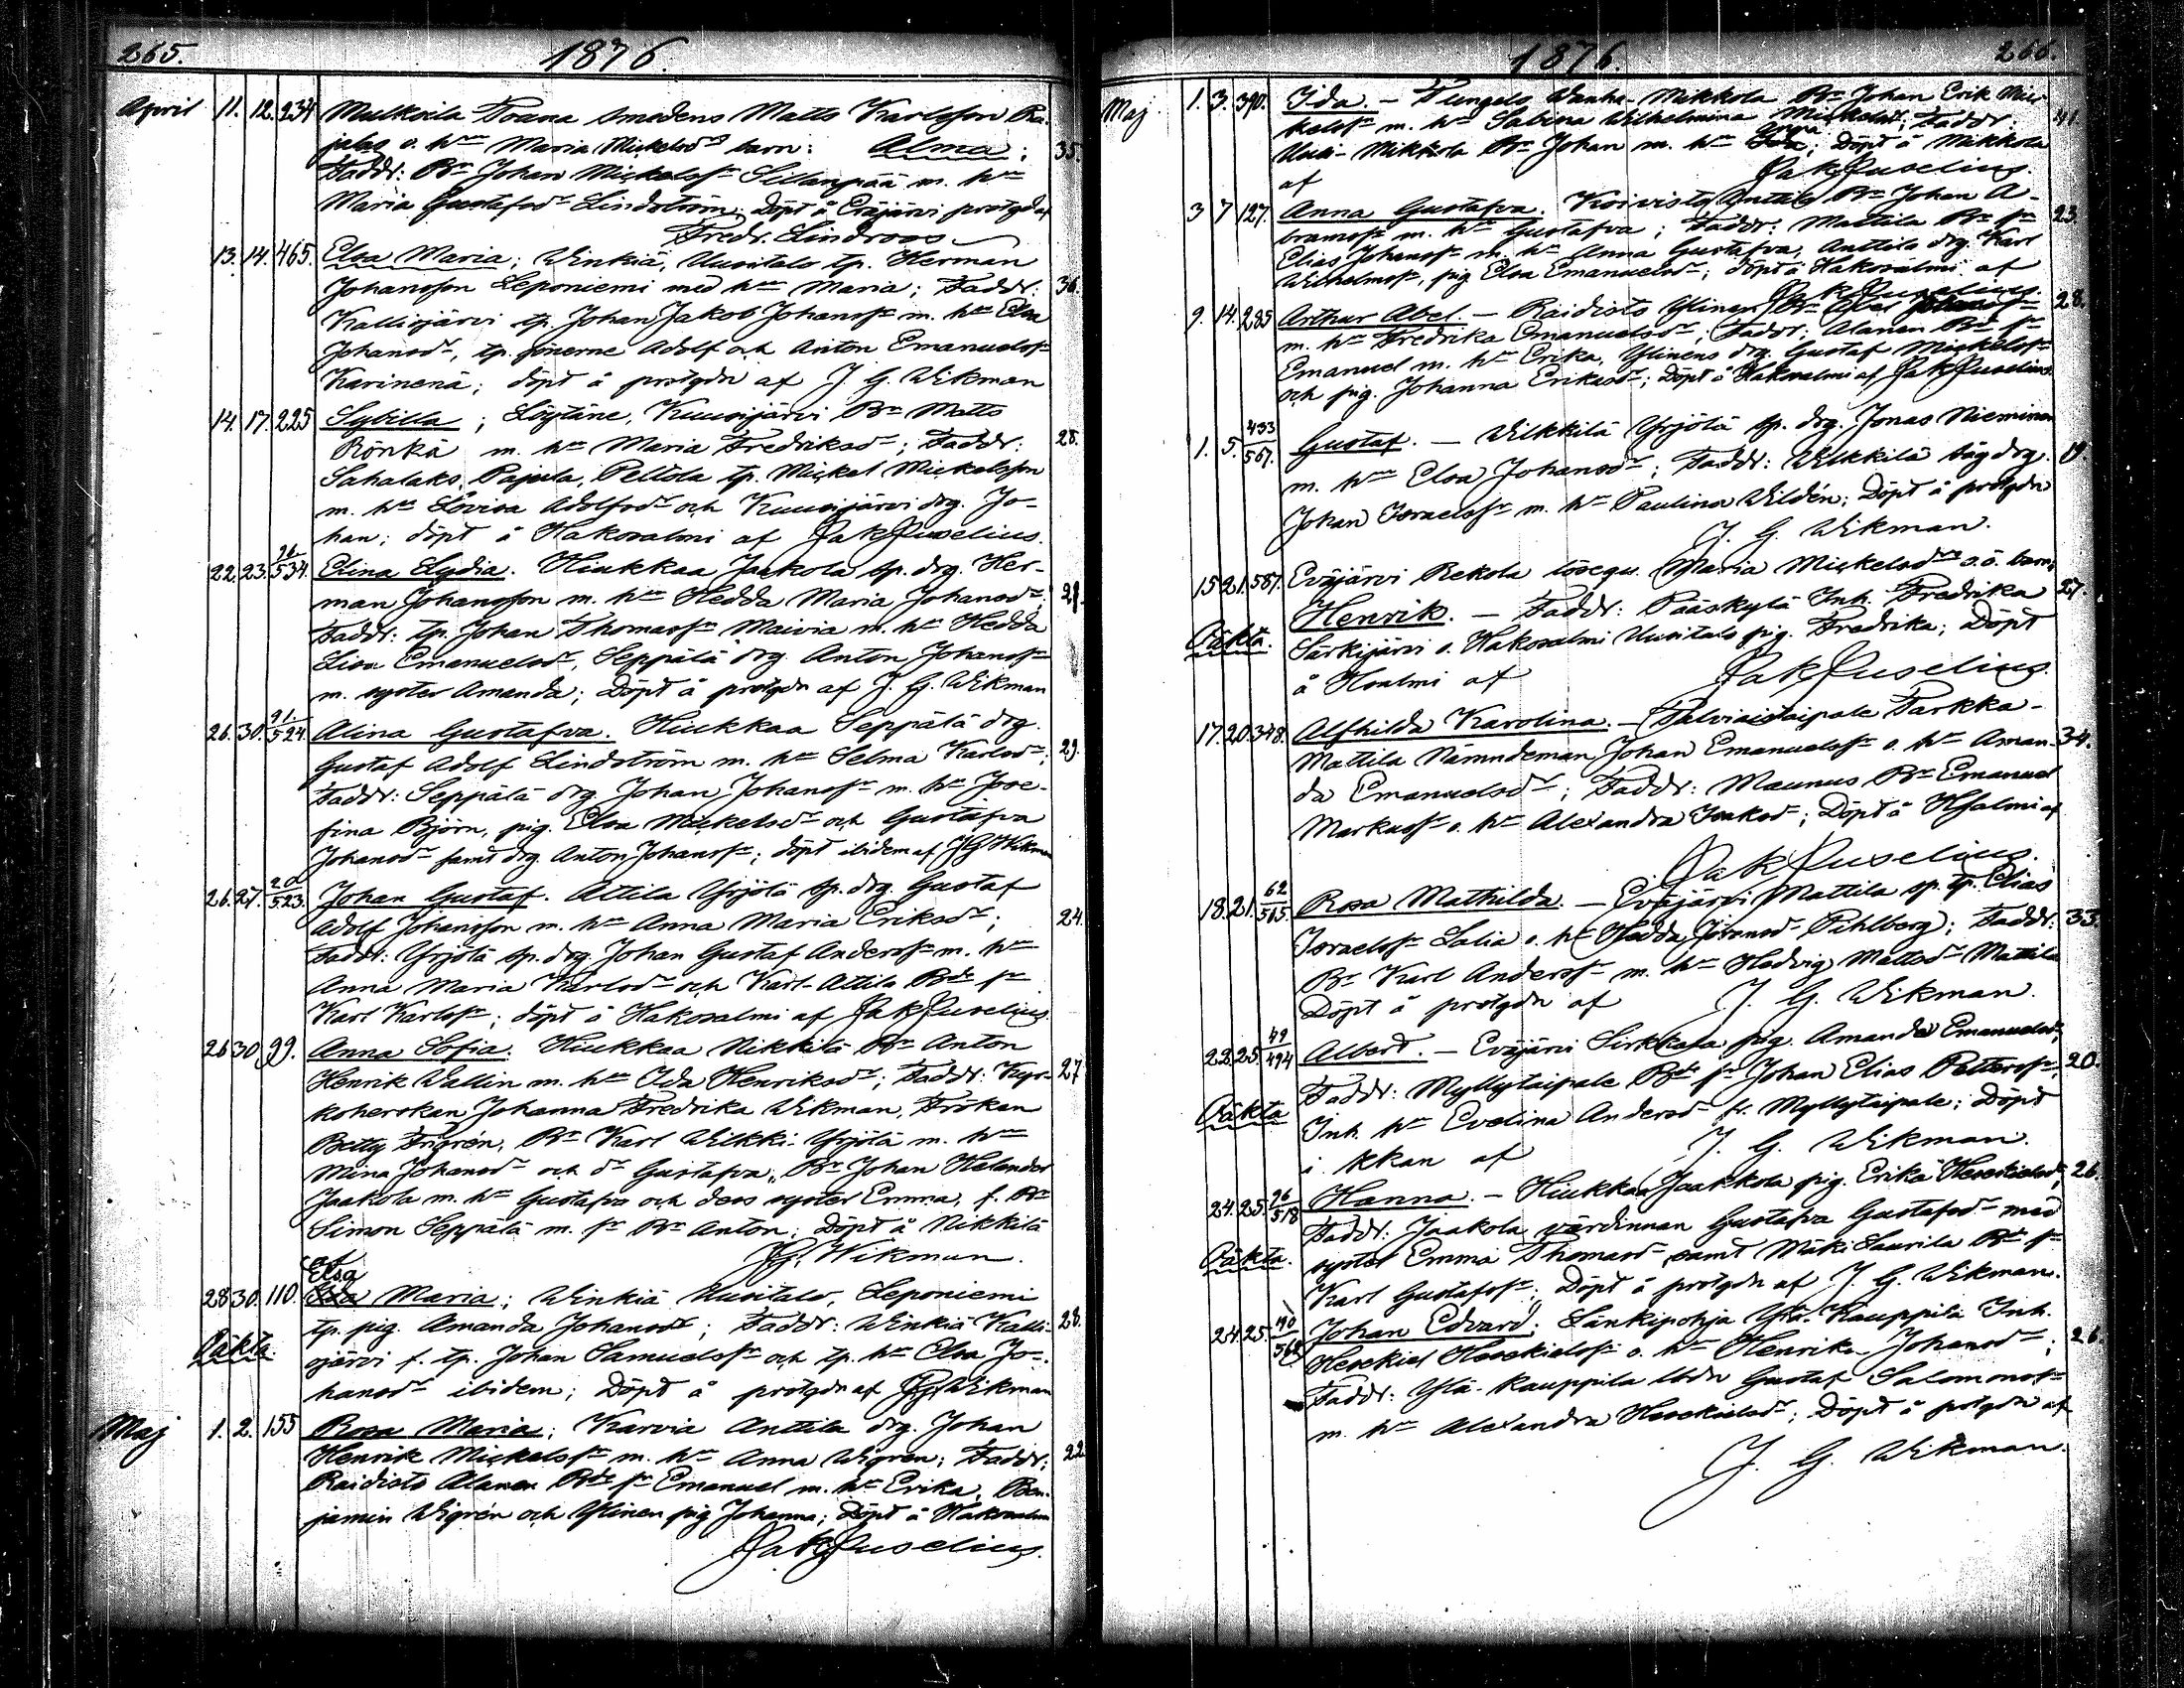 265. 1876.
April 11. 12. 234 Mulkoila Toana smedens Matts Karlsson Ra-
jalas o. hn Maria Mickelsdrs barn: Alma; 35.
Faddr: Bn Johan Mickelssn Sillanpää m. hn
Maria Gustafsdr Lindström; Döpt å Eräjärvi prstgdn af
Fredr. Lindroos
13. 14. 465. Elsa Maria; Winkiä, Uusitalo tp. Herman
Johansson Leponiemi med hn Maria; Faddr: 36.
Kalliojärvi tp. Johan Jakob Johanssn m. hn Elsa
Johansdr, tp. sönerne Adolf och Anton Emanuelssn
Karinenä; döpt å prstgdn af J. G. Wikman
14. 17. 225 Sybilla; Löytäne, Kuusijärvi Bn Matts
Rönkä m. hn Maria Fredriksdr; Faddr: 28.
Sahalaks, Pajula, Peltola tp. Mickel Mickelsson
m. hn Lovisa Adolfsdr och Kuusijärvi drg. Jo-
han; döpt å Hakosalmi af Jak Juselius.
22. 23. 96/534. Elina Lydia. Hiukkaa Jaakola sp. drg. Her-
man Johansson m. hn Hedda Maria Johansdr; 28.
Faddr: tp. Johan Thomassn Maivia m. hn Hedda
Lisa Emanuelsdr, Seppälä drg. Anton Johanssn
m. syster Amanda; Döpt å prstgdn af J. G. Wikman
26. 30. 91/524. Alina Gustafva. Hiukkaa Seppälä drg.
Gustaf Adolf Lindström m. hn Selma Karlsdr; 29.
Faddr: Seppälä drg. Johan Johanssn m. hn Jose-
fina Björn, pig. Elsa Mickelsdr och Gustafva
Johansdr samt drg. Anton Johanssn; döpt ibidem af J G Wikman
26. 27. 20/523. Johan Gustaf. Attila Yrjölä sp. drg. Gustaf
Adolf Johansson m. hn Anna Maria Eriksdr; 24.
Faddr: Yrjölä sp. drg. Johan Gustaf Anderssn m. hn
Anna Maria Karlsdr och Karl-Attila Bde sn
Karl Karlssn; döpt å Hakosalmi af Jak Juselius.
26 30 99. Anna Sofia. Hiukkaa Nikkilä Bn Anton
Henrik Wallin m. hn Ida Henriksdr; Faddr: Kyr- 27
koherskan Johanna Fredrika Wikman, Fröken
Betty Frigrén, Bn Karl Wilkki-Yrjölä m. hn
Mina Johansdr och dr Gustafva, Bn Johan Helander
Jaakola m. hn Gustafva och dess syster Emma, f. Bn
Simon Seppälä m. sn Bn Anton; Döpt å Nikkilä
af J G. Wikman.
Elsa
28 30. 110. Maria; Winkiä Uusitalo, Leponiemi
tp. pig. Amanda Johansdr; Faddr: Winkiä Kalli- 28.
Oäkta. ojärvi f. tp. Johan Samuelssn och tp. hn Elsa Jo-
hansdr ibidem; Döpt å prstgdn af J G Wikman
Maj 1. 2. 155 Rosa Maria; Karvia Anttila drg. Johan
Henrik Mickelssn m. hn Anna Wigren; Faddr: 22
Raidisto Alanen Bde sn Emanuel m. hn Erika, Ben-
jamin Wigrén och Ylinen pig Johanna; Döpt å Hakosalmi
Jak Juselius.
1876. 266.
Maj 1. 3. 390. Ida. – Pungelo Wanha-Mikkola Bn Johan Erik Mic-
kelssn m. hn Sabina Wilhelmina Mickelsdr; Faddr: 41.
Uusi-Mikkola Bn Johan m. hn Anna; Döpt å Mikkola
af Jak Juselius.
3 7 127. Anna Gustafva. Koivisto Anttila Bn Johan A-
bramssn m. hn Gustafva; Faddr: Mattila Bn sn 23.
Elias Johanssn m. hn Anna Gustafva, Anttila drg. Karl
Wilhelmssn, pig Elsa Emanuelsdr; döpt å Hakosalmi af
Jak Juselius.
9. 14. 285 Arthur Abel. – Raidisto Ylinen Bn Abel 28.
m. hn Fredrika Emanuelsdr; Faddr: Alanen Bde sn
Emanuel m. hn Erika, Ylinens drg. Gustaf Mickelssn
och pig. Johanna Eriksdr; Döpt å Hakosalmi af Jak Juselius
1. 5. 433/567. Gustaf. – Wilkkilä Yrjölä sp. drg. Jonas Nieminen
m. hn Elsa Johansdr; Faddr: Wilkkilä såg drg. 19.
Johan Israelssn m. hn Paulina Wildén; Döpt å prstgdn
J. G. Wikman.
15 21. 587. Eräjärvi Rekola lösegv. Maria Mickelsdrs o. ä. barn;
Henrik. – Faddr: Pääskylä Inh. Fredrika 27.
Oäkta. Särkijärvi o. Hakosalmi Uusitalo pig. Fredrika; Döpt
å Hsalmi af Jak Juselius.
17. 20. 348. Alfhilda Karolina. – Talviaistaipale Parkka-
Mattila Nämndeman Johan Emanuelssn o. hn Aman- 34.
da Emanuelsdr; Faddr: Maunus Bn Emanuel
Markussn o. hn Alexandra Isaksdr; Döpt å Hsalmi af
Jak Juselius.
18. 21. 62/565. Rosa Mathilda. – Eräjärvi Mattila sp. tp. Elias
Israelssn Salia o. hn Hedda Johansdr Pihlberg; Faddr: 33.
Bn Karl Anderssn m. hn Hedvig Mattsdr Mattila
Döpt å prstgdn af J. G. Wikman.
22. 25. 49/494 Albert. – Eräjärvi Sirkkala pig. Amanda Emanuelsdr;
Faddr: Myllytaipale Bde sn Johan Elias Petterssn, 20.
Oäkta Inh. hn Evelina Andersdr fr. Myllytaipale; Döpt
i kkan af J. G. Wikman.
24. 25. 96/518 Hanna. – Hiukkaa Jaakkola pig. Erika Hesekielsdr; 26.
Faddr: Jaakola värdinnan Gustafva Gustafsdr med
Oäkta. syster Emma Thomasdr samt Mäki Saurila Bde sn
Karl Gustafssn; Döpt å prstgdn af J. G. Wikman.
24. 25. Johan Edvard; Länkipohja Ylä-Kauppila Inh.
Hesekiel Hesekielssn o. hn Henrika Johansdr; 26.
Faddr: Ylä-Kauppila Gustaf Salomonssn
m. hn Alexandra Hesekielsdr; Döpt å prstgdn af
J. G. Wikman.